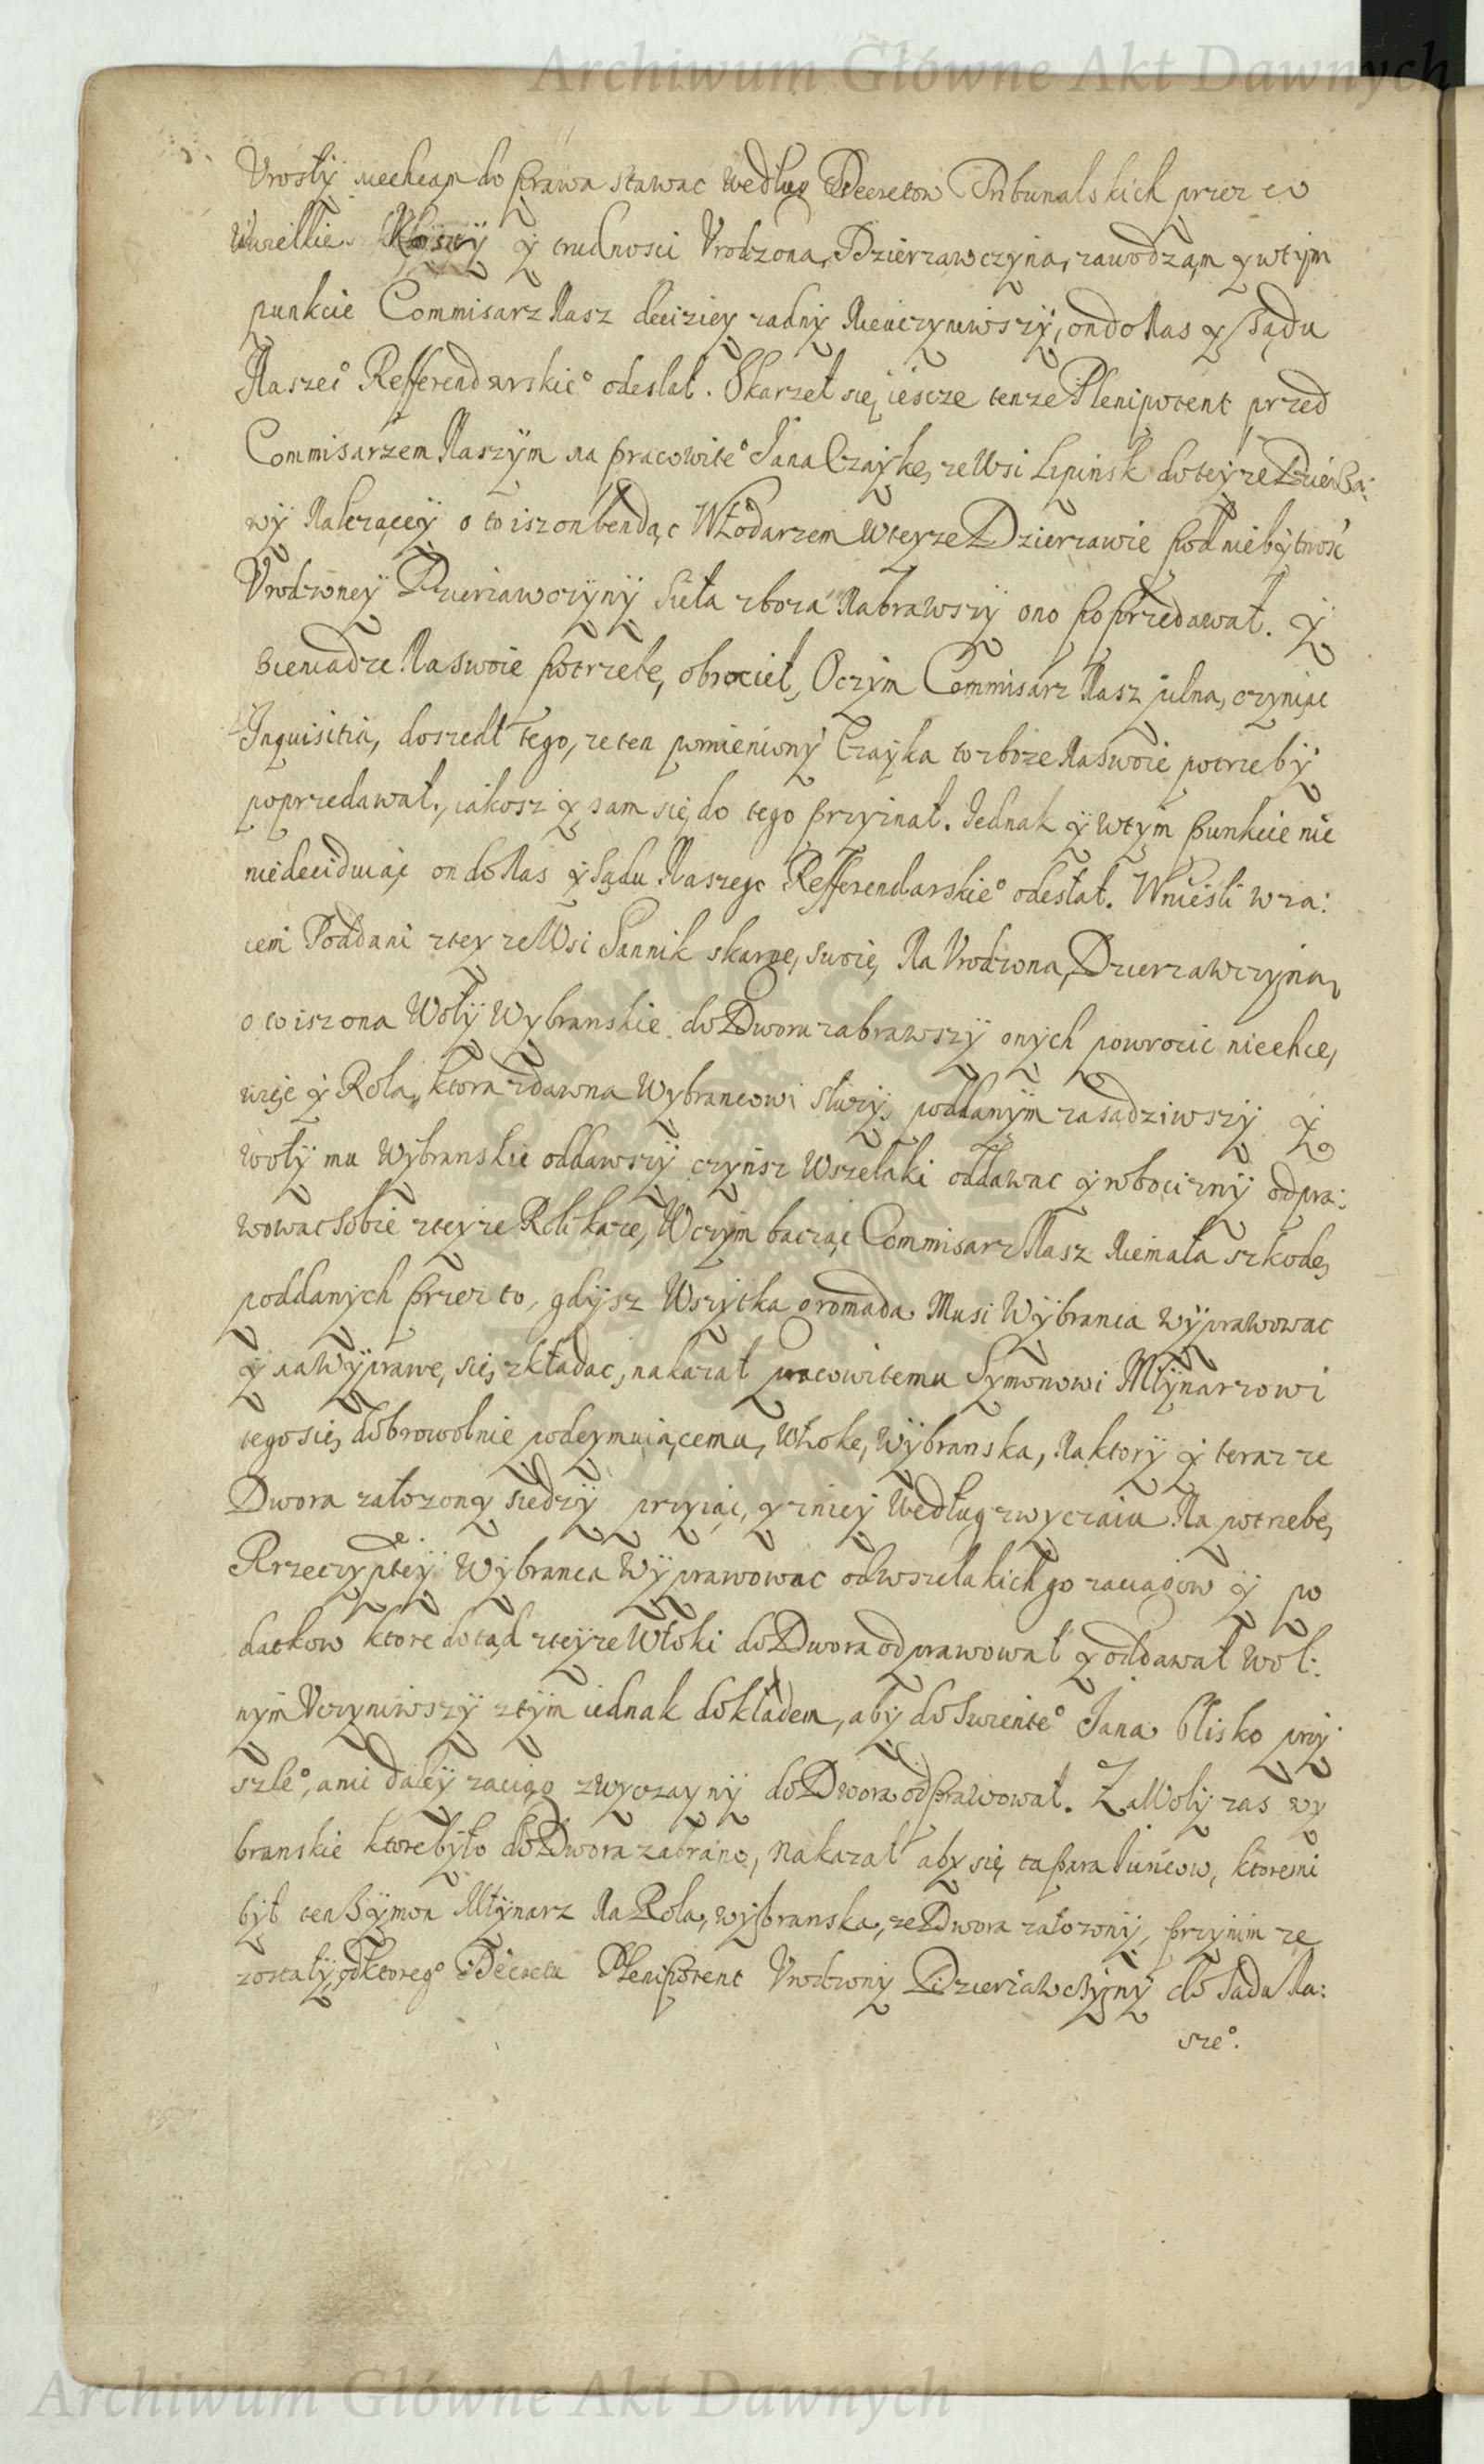 Archiwum Główne Akt Dawnych
Urosły niechcąm do prawa stawac według Decretow Tribunalskich przez co
wszelkie koszty y trudnosci Vrodzoną Dzierzawczyną zawodzam y w tym
punkcie Commisarz Nasz deciziey zadny Nieuczyniwszy, on do Nas y Sądu
Naszeº Refferendarskieº odesłał. Skarzeł się iescze tenze Plenipotent przed
Commisarzem Naszym na pracowiteº Jana Czaykę, ze Wsi Lipinsk do teyze Dzierza:
wy Nalezącey o to isz on bendąc Włodarzem w teyze Dzierzawie pod niebytnosc
Vrodzoney Dzierzawczyny siła zboza Nabrawszy ono poprzedawał. y
Pieniadze Na swoie potrzebę, obrocieł, O czym Commisarz Nasz pilną, czyniąc
Inquisitią, doszedł tego, ze ten pomieniony Czayka to zboze Na swoie potrzeby
poprzedawał, iakosz y sam się do tego przyznał. Jednak y w tym punkcie nic
niedeciduiąc on do Nas y Sądu Naszego Refferendarskieº odesłał. Wniesli wza:
iem Poddani z tey ze Wsi Sannik skargę, swoię, Na Vrodzoną Dzierzawczyną,
o to isz ona Woły Wybranskie do Dworu zabrawszy onych powrocic niechce,
więc y Rolą, ktora zdawna Wybrancowi służy, poddanym zasadziwszy y
woły mu Wybranskie oddawszy czynsz Wszelaki oddawac y robocizny odpra:
wowac sobie z teyze Roli kaze, W czym bacząc Commisarz Nasz Niemałą szkodę,
poddanych przez to, gdysz Wszytka gromada Musi Wybranca wyprawowac
y na Wyprawę, się, zkładac, nakazał pracowitemu Symonowi Młynarzowi
tego się, dobrowolnie podeymuiącemu, Włokę, Wybranską, Na ktory y teraz ze
Dwora załozony siedzy przyiąc, y z niey Według zwyczaiu Na potrzebę,
Rzeczyptey Wybranca Wyprawowac od wszelakich go zaciagow y po
datkow ktore dotąd z teyze Włoki do Dwora odprawował y oddawał wol:
nym Vczyniwszy z tym iednak dokładem, aby do Swienteº Jana blisko przy
szłeº, ani daley zaciąg zwyczayny do Dwora odprawował. Za Woły zas wy
branskie ktore było do Dwora zabrano, Nakazał aby się ta para Iuncow, ktoremi
był ten Symon Młynarz Na Rolą, wybranską, ze Dwora załozony, przy nim ze
zostały, od ktoregº Decretu Plenipotent Vrodzony Dzierzawczyny do Sadu Na:
szeº.
Archiwum Główne Akt Dawnych